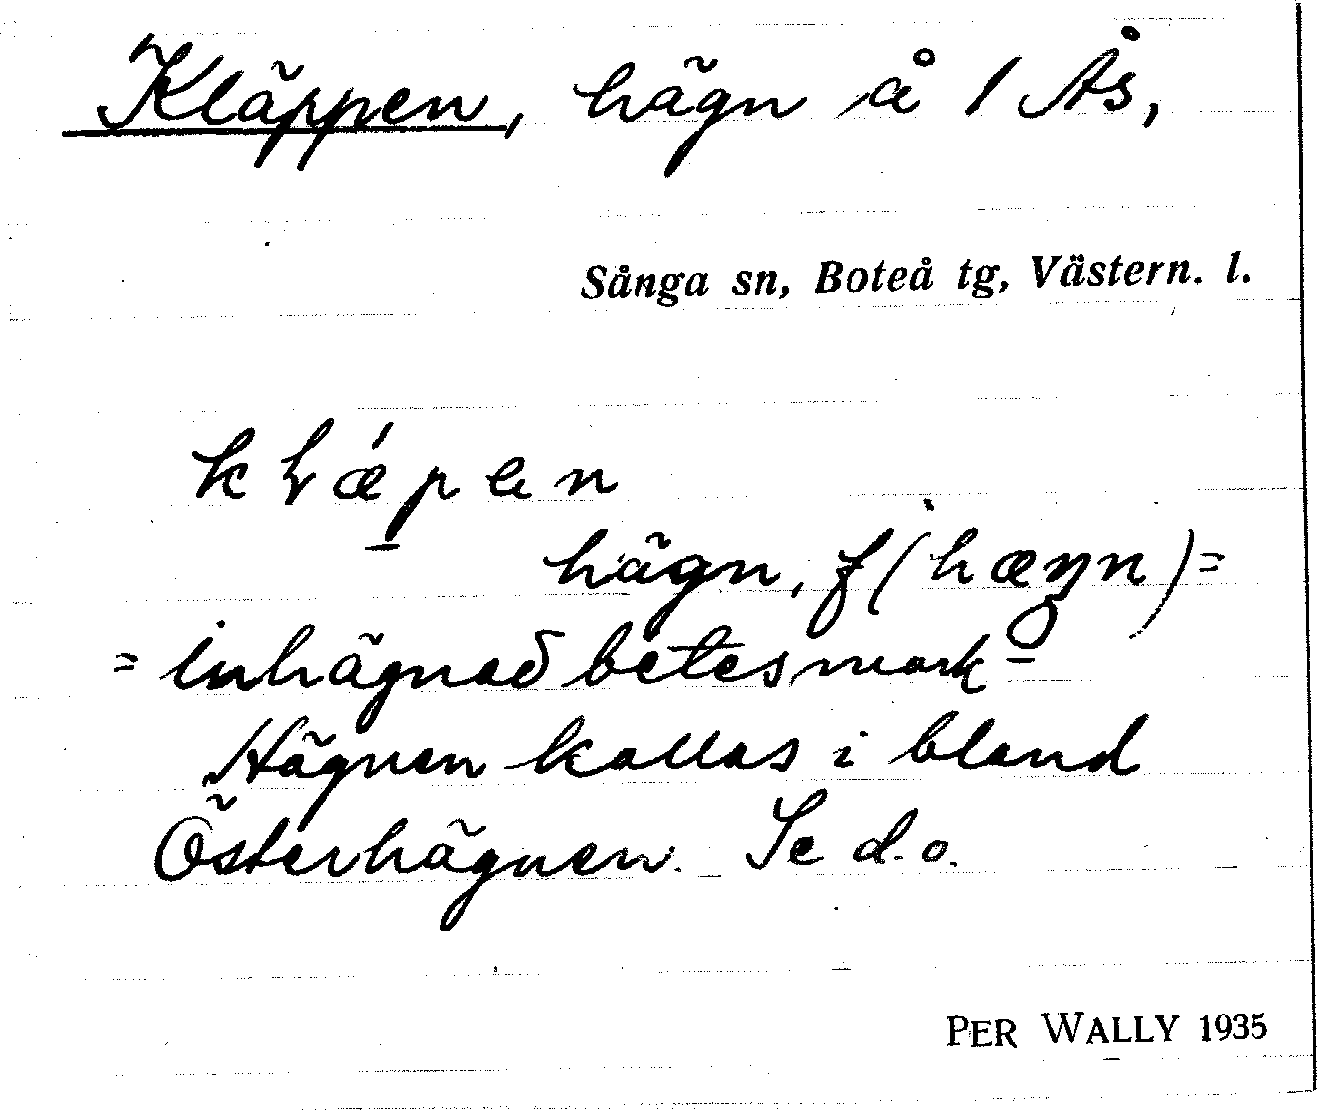 Kläppen, hägn å 1 Ås,
Sånga sn, Boteå tg, Västern. l.
hägn, f (hæŋn) =
= inhägnad betesmark –
Hägnen kallas i bland
Österhägnen. Se d.o.
PER WALLY 1935